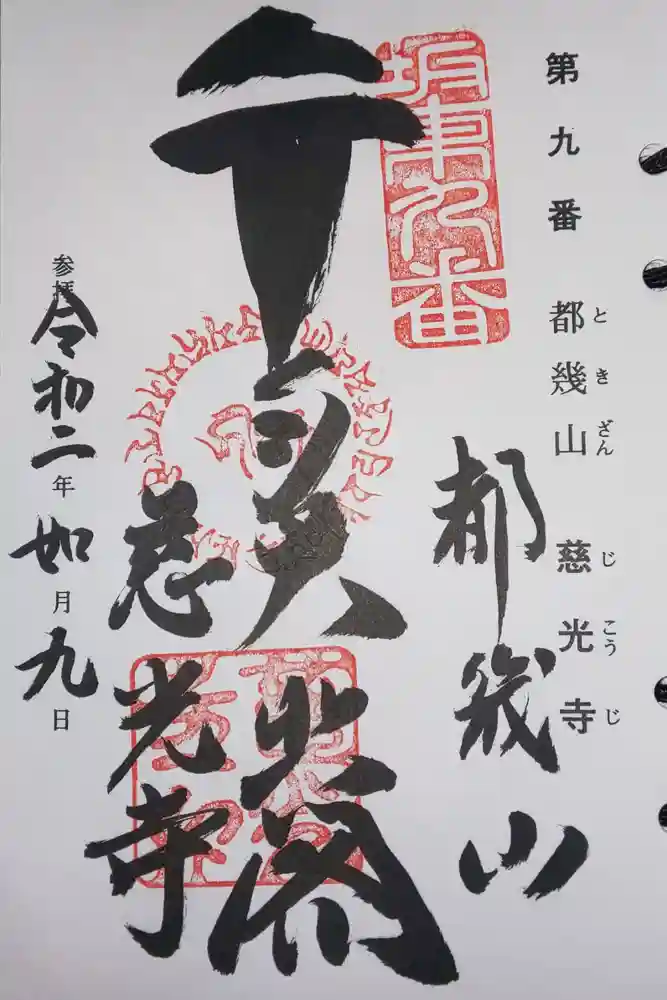 第九番 都幾山 慈光寺
ときざん じこうじ
坂東九番
都幾山
慈光寺
参拝 令和二年如月九日